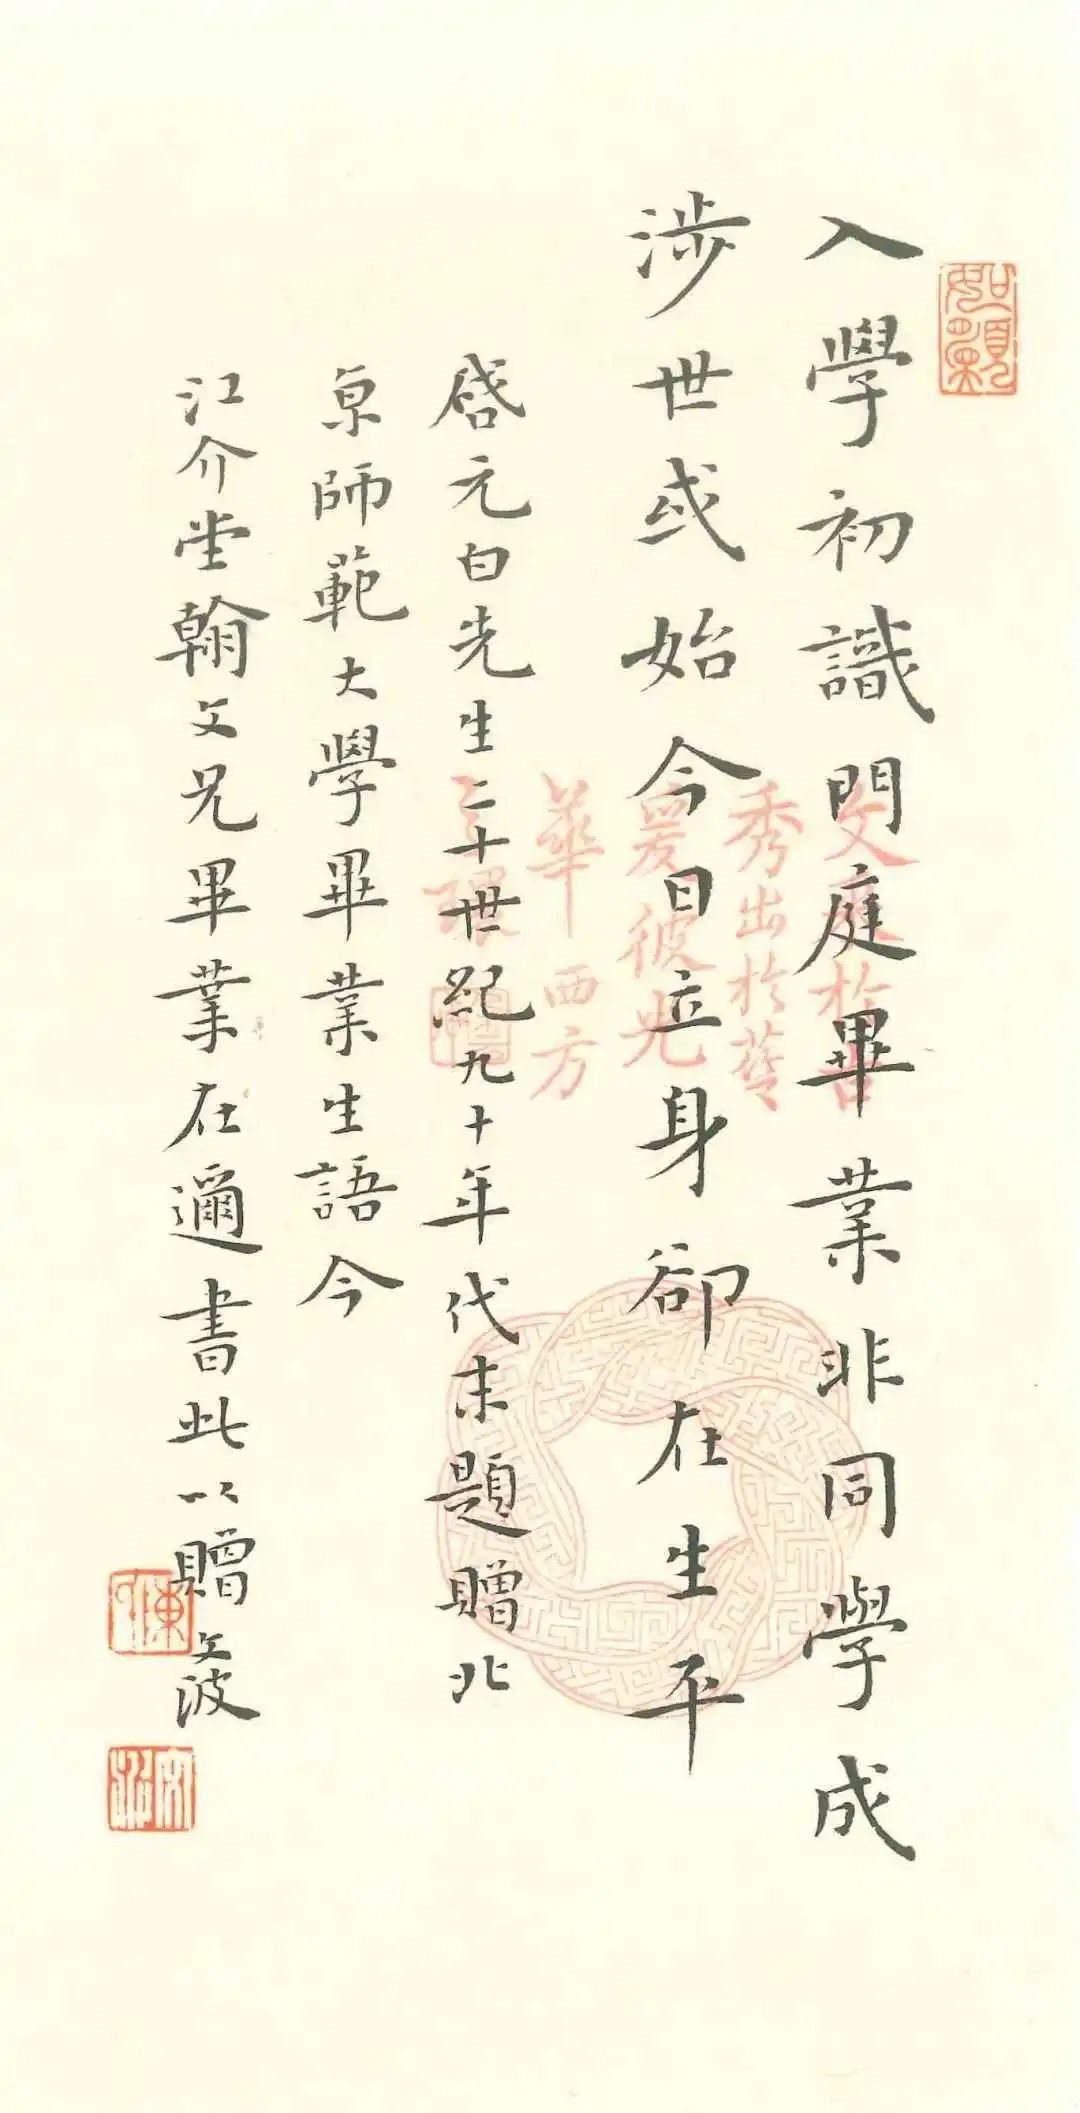 入學初識門庭畢業非同學成
涉世或始今日立身卻在生平
啓元白先生二十世紀九十年代末題贈北
京師範大學畢業生語今
江介堂翰文兄畢業在邇書此以贈文波
秀出於藝
爰彼光
華西方